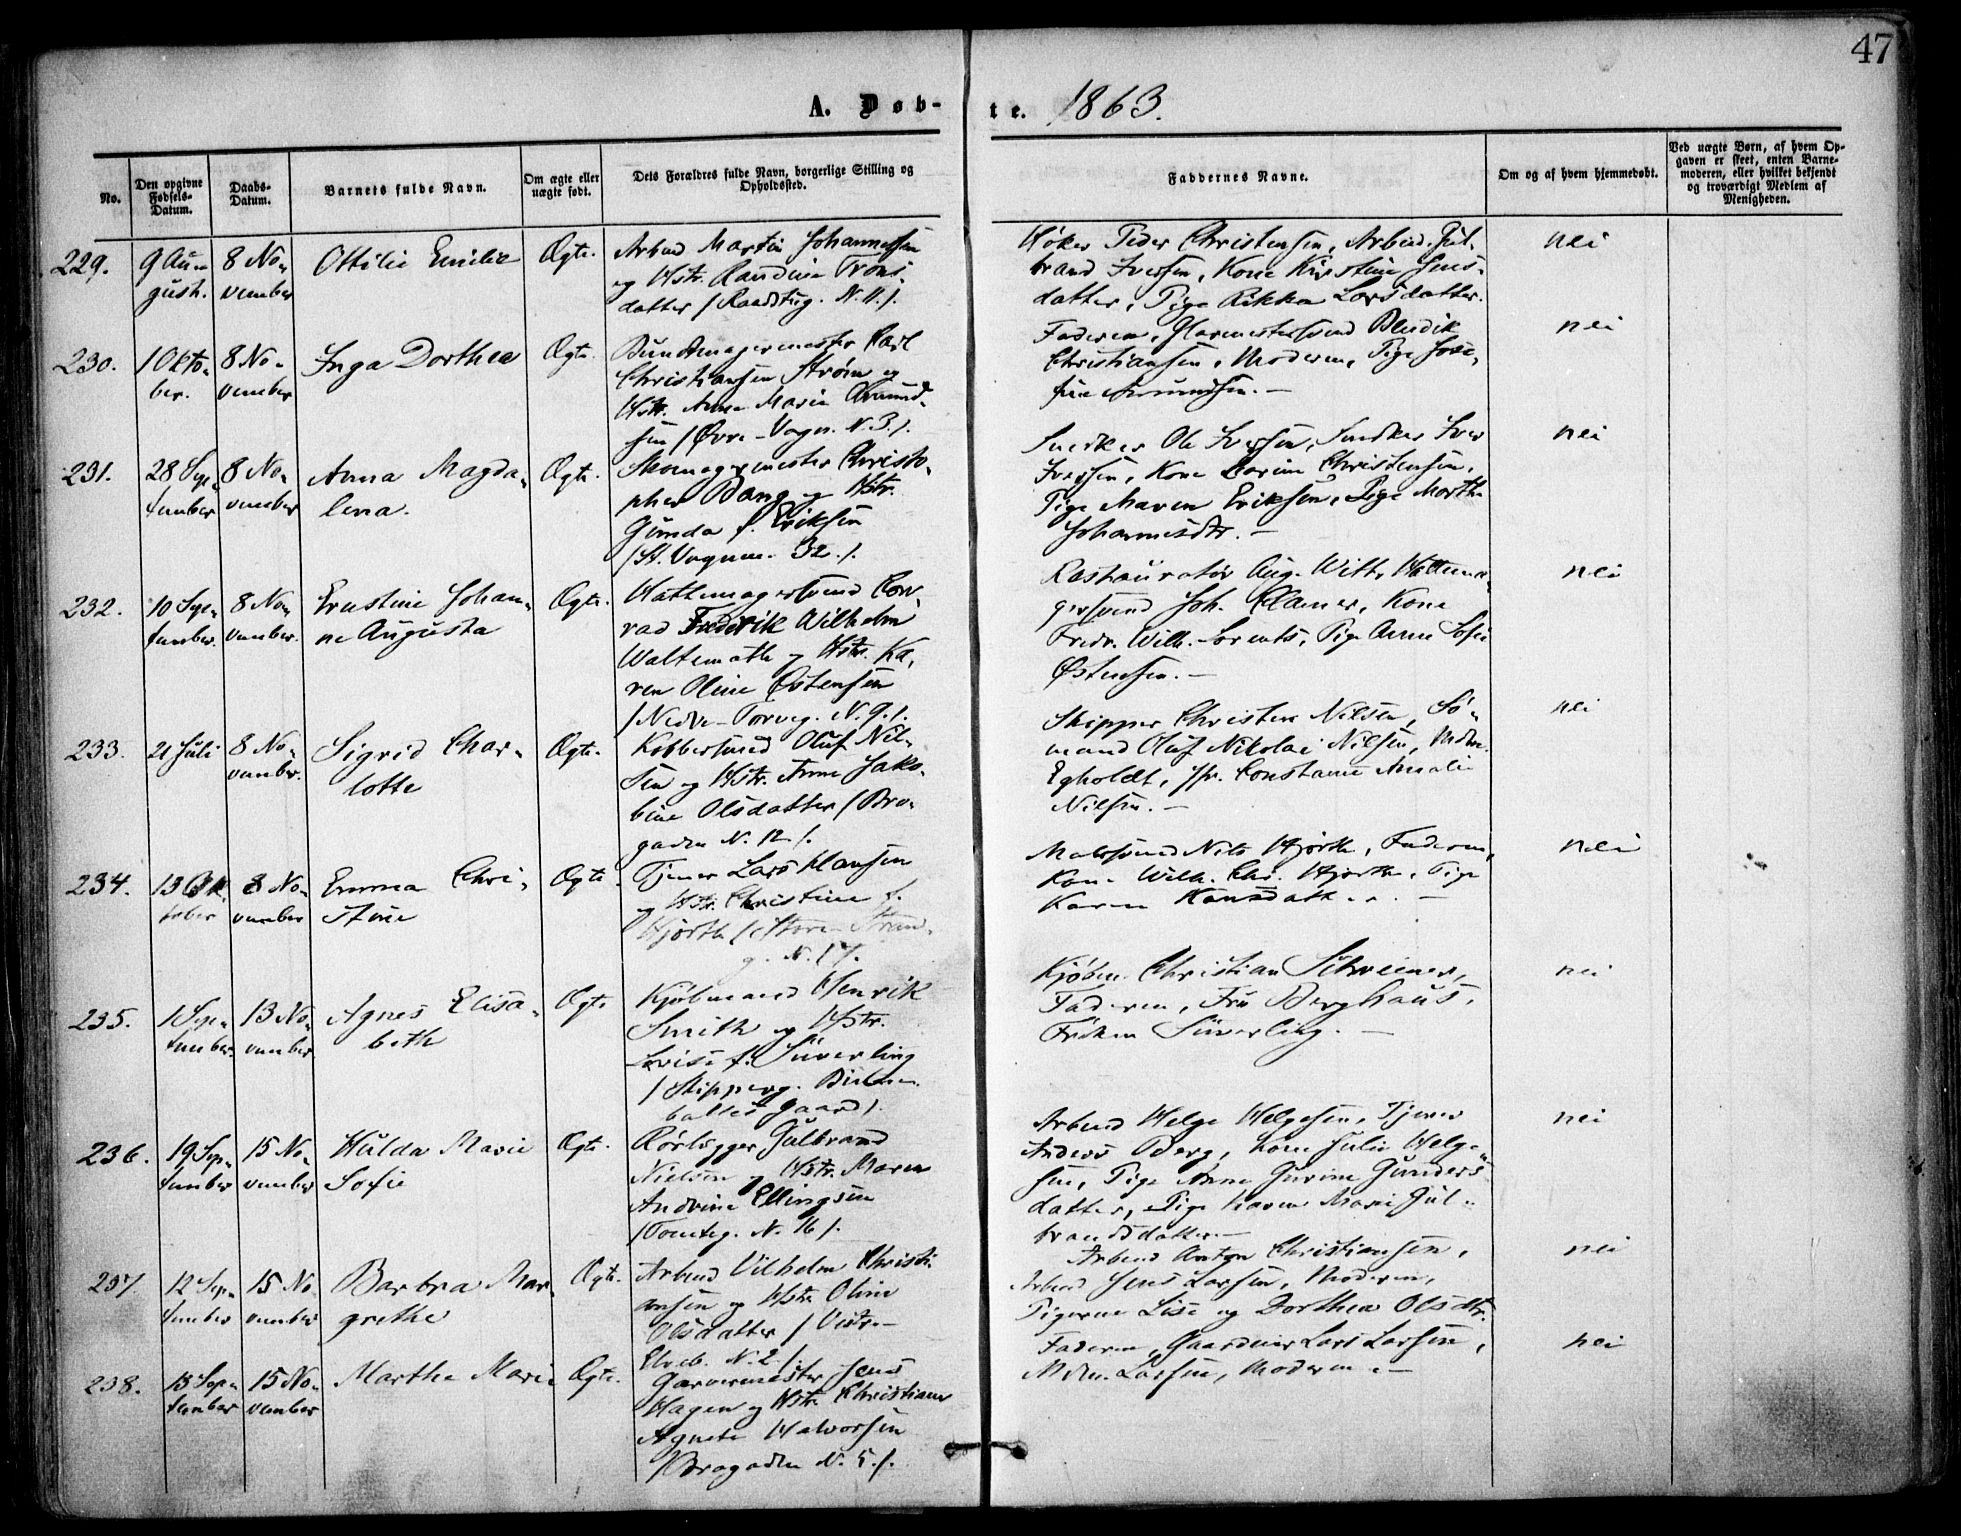 47
A. Døb-te. 1863.
No.
Den opgivne Fødsels-Datum.
Daabs-Datum.
Barnets fulde Navn.
Om ægte eller uægte født.
Dets Forældres fulde Navn, borgerlige Stilling og Opholdssted.
Faddernes Navne.
Om og af hvem hjemmedøbt.
Ved uægte Børn, af hvem Op-
gaven er skeet, enten Barne-
moderen, eller hvilket bekjendt
og troværdigt Medlem af
Menigheden.
229.
9 Au-
gust.
8 No-
vember
Ottilie Emilie
Ægte.
Arbmd Martin Johannessen
og Hstr. Randine Trons
datter /: Raadstug. N. 11./.
Høker Peder Christensen, Arbmd. Gul-
brand Iversen, Kone Kirstine Jens-
datter, Pige Rikka Larsdatter.
nei
230.
1 Okto-
ber.
8 No-
vember
Inga Dorthea
Ægte.
Buntmagermester Carl
Christiansen Strøm og
Hstr. Anne Marie Amund-
sen /: Øvre-Vogn. N. 3./.
Faderen, Glarmestersvend Bendik
Christiansen, Moderen, Pige Jose-
fine Amundsen. —
nei
231.
28 Sep-
tember
8 No-
vember
Anna Magda-
lena.
Ægte.
Skomagermester Christo-
pher Bang og Hstr.
Gunda f. Eriksen
/: St. Vognm. 32./.
Snedker Ole Iversen, Snedker Iver
Iversen, Kone Karine Christensen,
Pige Maren Eriksen, Pige Marth.
Johannesdtr. —
nei
232.
10 Sep-
tember.
8 No-
vember.
Ernstine Johan-
ne Augusta
Ægte.
Hattemagersvend Con-
rad Frederik Wilhelm
Waltemath og Hstr. Ka-
ren Oline Østensen
/: Nedre-Torveg. N. 9./.
Restauratør Aug. Witt, Hattema-
gersvend Joh. Clamer, Kone
Fredr. Wilh. Lorents, Pige Anne Sofie
Østensen. —
nei
233.
21 Juli
8 No-
vember.
Sigrid Char-
lotte
Ægte.
Kobbersmed Oluf Nil-
sen og Hstr. Anne Jako-
bine Olsdatter /: Bro-
gaden N. 12./.
Skipper Christen Nilsen, Sø-
mand Oluf Nikolai Nilsen, Mdm.
Egholdt, Jfr. Constance Amalie
Nilsen. —
nei
234.
13 Ok-
tober
8 No-
vember
Emma Chri-
stine
Ægte.
Tjener Lars Hansen
og Hstr. Christine f.
Hjorth /: Store Strand-
g. N. 17/.
Malersvend Nils Hjorth, Faderen,
Kone Wilh. Chr. Hjorth, Pige
Karen Hansdatt.. —
nei
235.
1 Sep-
tember.
13 No-
vember
Agnes Elisa-
beth
Ægte
Kjøbmand Henrik
Smith og Hstr.
Lovise f. Süverling
/: Skipperg.
gaard/.
Kjøbm. Christian Schreiner,
Faderen, Fru Berghaus,
Frøken Süverling. —
nei
236.
19 Sep-
tember
15 No-
vember
Hulda Marie
Sofie
Ægte.
Rørlægger Gulbrand
Nielsen og Hstr. Maren
Andrine Ellingsen
/: Tomteg. N. 16/.
Arbmd Helge Helgesen, Tjener
Anders Berg, Kone Julie Helge-
sen, Pige Anne Gurine Gunders
datter, Pige Karen Marie Gul-
brandsdatter —
nei
237.
12 Sep-
tember
15 No-
vember
Barbra Mar-
grethe
Ægte.
Arbmd Vilhelm Christi-
ansen og Hstr. Oline
Olsdatter / Vestr.-
Elveb. N. 2/
Arbmd Anton Christiansen,
Arbmd Jens Larsen, Moderen,
Pigerne Lise og Dorthea Olsdtr.
nei
238.
13 Sep-
tember
15 No-
vember
Marthe Marie
Ægte.
Garvermester Jens
Hagen og Hstr. Christiane
Agnete Halvorsen
/: Brogaden N. 5./.
Faderen, Gaardeier Lars Larsen,
Mdm. Larsen, Moderen. —
nei